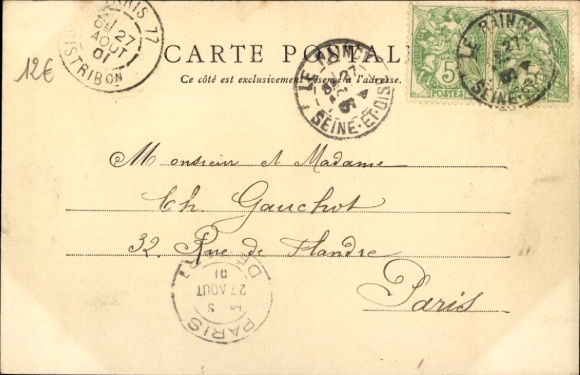 PARIS 17
27
AOUT
01
DISTRIBON
12€
CARTE POSTALE
Ce côté est exclusivement réservé à l'adresse.
LE
27
SEINE-ET-OISE
5
POSTES
LE RAINCY
27
SEINE-ET-OISE
5
Monsieur et Madame
Ch. Gauchot
32, Rue de Flandre
Paris
PARIS
27 AOUT
01